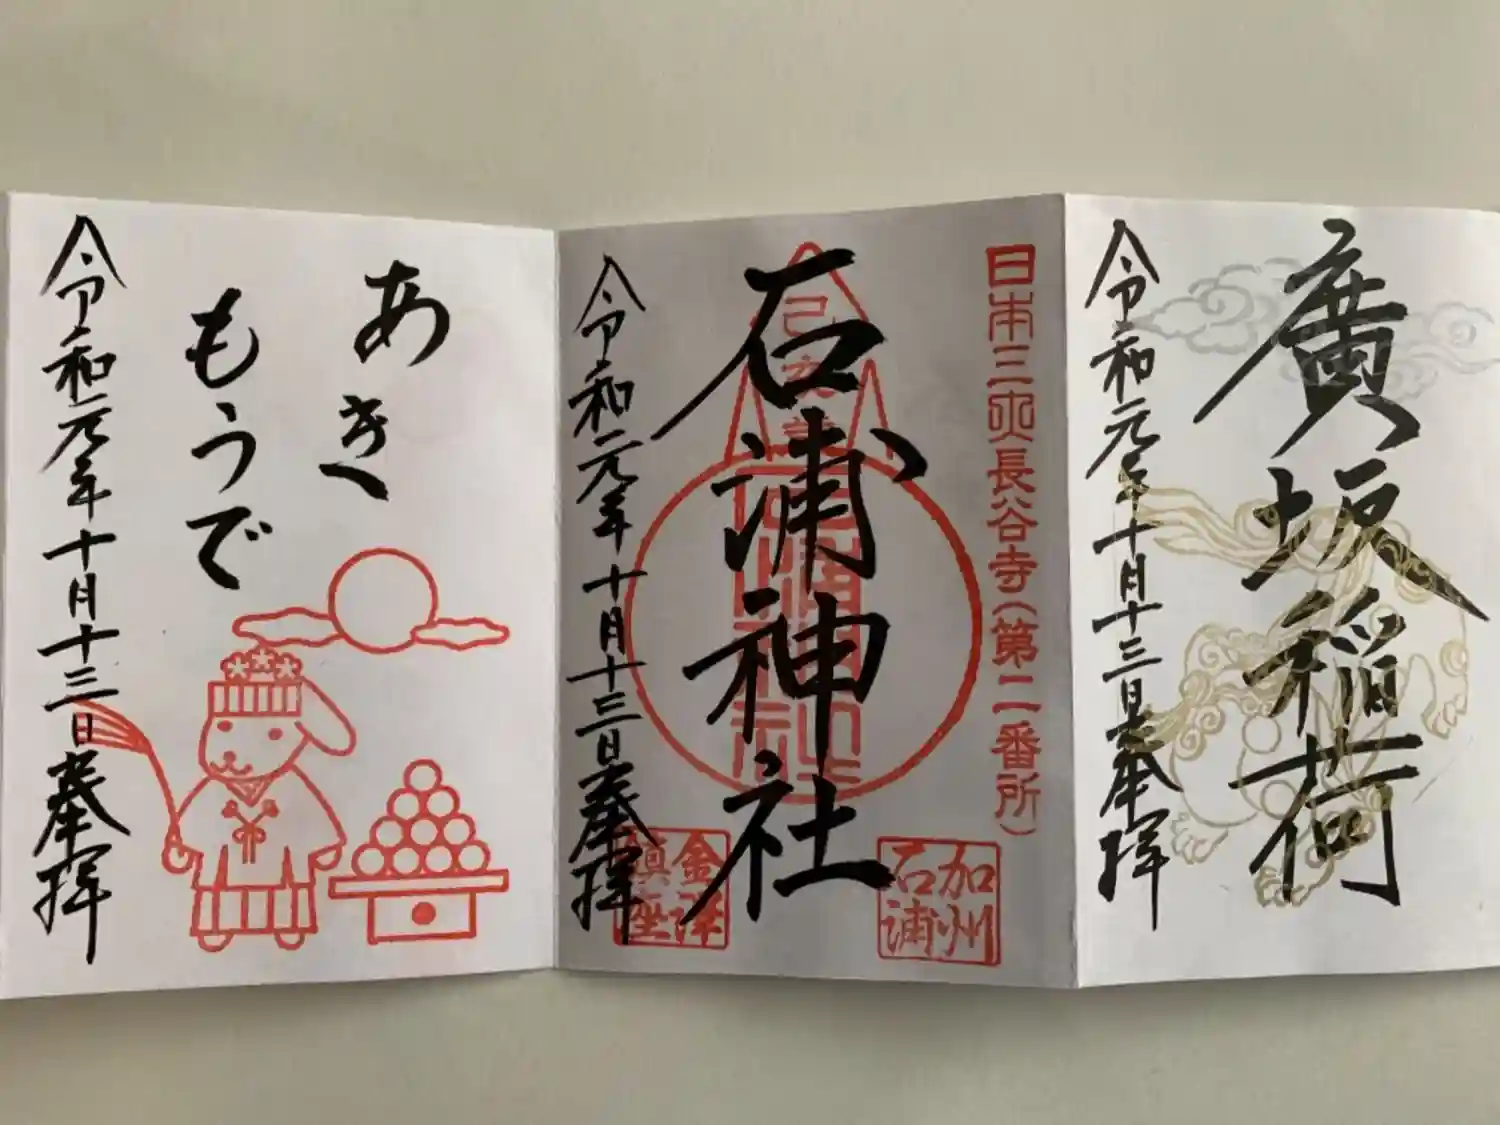 廣坂稲荷
令和元年十月十三日奉拝
日本三所長谷寺(第二番所)
石浦神社
加州
石浦
金澤
鎮座
令和元年十月十三日奉拝
あき
もうで
令和元年十月十三日奉拝